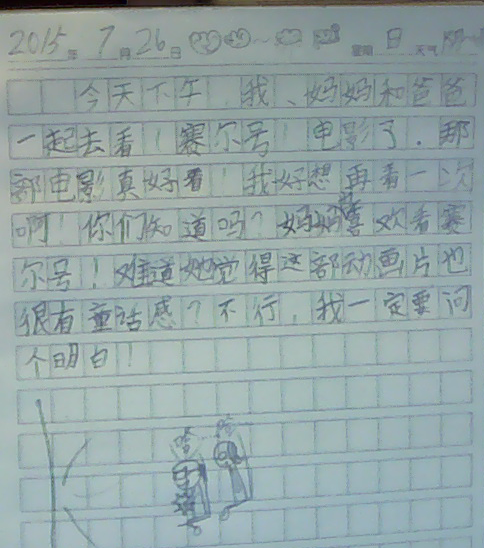 2015年7月26日 星期日 天气阴
今天下午,我、妈妈和爸爸
一起去看《赛尔号》电影了.那
部电影真好看!我好想再看一次
啊!你们知道吗?妈妈喜欢看赛
尔号!难道她觉得这部动画片也
很有童话感?不行,我一定要问
个明白!
哈 哈